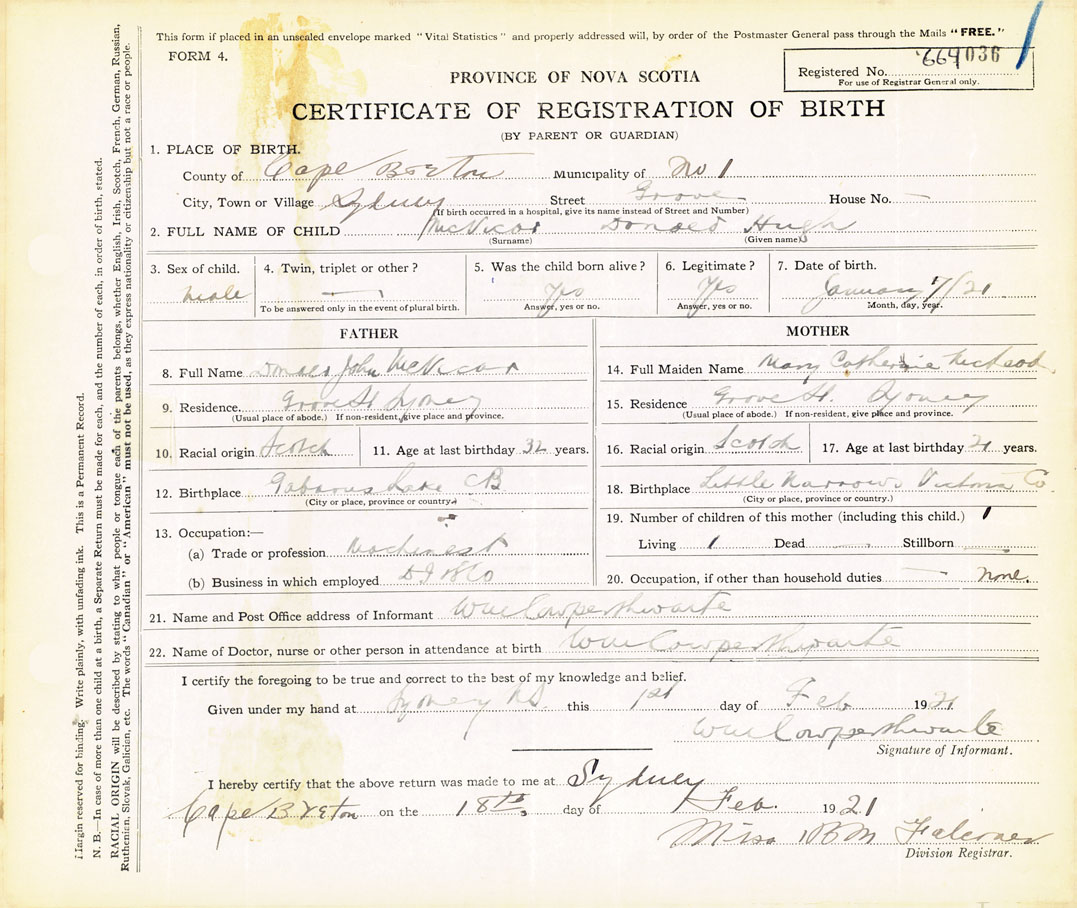 This form if placed in an unsealed envelope marked "Vital Statistics" and properly addressed will, by order of the Postmaster General pass through the Mails "FREE."
FORM 4.
664036
Registered No.
For use of Registrar General only.
PROVINCE OF NOVA SCOTIA
CERTIFICATE OF REGISTRATION OF BIRTH
(BY PARENT OR GUARDIAN)
1. PLACE OF BIRTH.
County of Cape Breton Municipality of No 1
City, Town or Village Sydney Street Grove House No. —
(If birth occurred in a hospital, give its name instead of Street and Number)
2. FULL NAME OF CHILD McVicar Donald Hugh
(Surname) (Given name)
3. Sex of child. Male
4. Twin, triplet or other? —
To be answered only in the event of plural birth.
5. Was the child born alive? Yes
Answer, yes or no.
6. Legitimate? Yes
Answer, yes or no.
7. Date of birth. January 7/21
Month, day, year.
FATHER
8. Full Name Donald John McVicar
9. Residence Grove St Sydney
(Usual place of abode.) If non-resident, give place and province.
10. Racial origin Scotch 11. Age at last birthday 32 years.
12. Birthplace Gabarus Lake CB
(City or place, province or country.)
13. Occupation:—
(a) Trade or profession Machinest
(b) Business in which employed D I & S Co
MOTHER
14. Full Maiden Name Mary Catherine McLeod
15. Residence Grove St. Sydney
(Usual place of abode.) If non-resident, give place and province.
16. Racial origin Scotch 17. Age at last birthday 21 years.
18. Birthplace Little Narrows Victoria Co.
(City or place, province or country.)
19. Number of children of this mother (including this child.) 1
Living 1 Dead — Stillborn —
20. Occupation, if other than household duties — none.
21. Name and Post Office address of Informant Wm Cowperthwaite
22. Name of Doctor, nurse or other person in attendance at birth Wm Cowperthwaite
I certify the foregoing to be true and correct to the best of my knowledge and belief.
Given under my hand at Sydney NS this 1st day of Feb 1921
Wm Cowperthwaite
Signature of Informant.
I hereby certify that the above return was made to me at Sydney
Cape Breton on the 18th day of Feb. 1921
Miss B M Falconer
Division Registrar.
Margin reserved for binding. Write plainly, with unfading ink. This is a Permanent Record.
N. B.—In case of more than one child at a birth, a Separate Return must be made for each, and the number of each, in order of birth, stated.
RACIAL ORIGIN will be described by stating to what people or tongue each of the parents belongs, whether English, Irish, Scotch, French, German, Russian,
Ruthenian, Slovak, Galician, etc. The words "Canadian" or "American" must not be used, as they express nationality or citizenship but not a race or people.